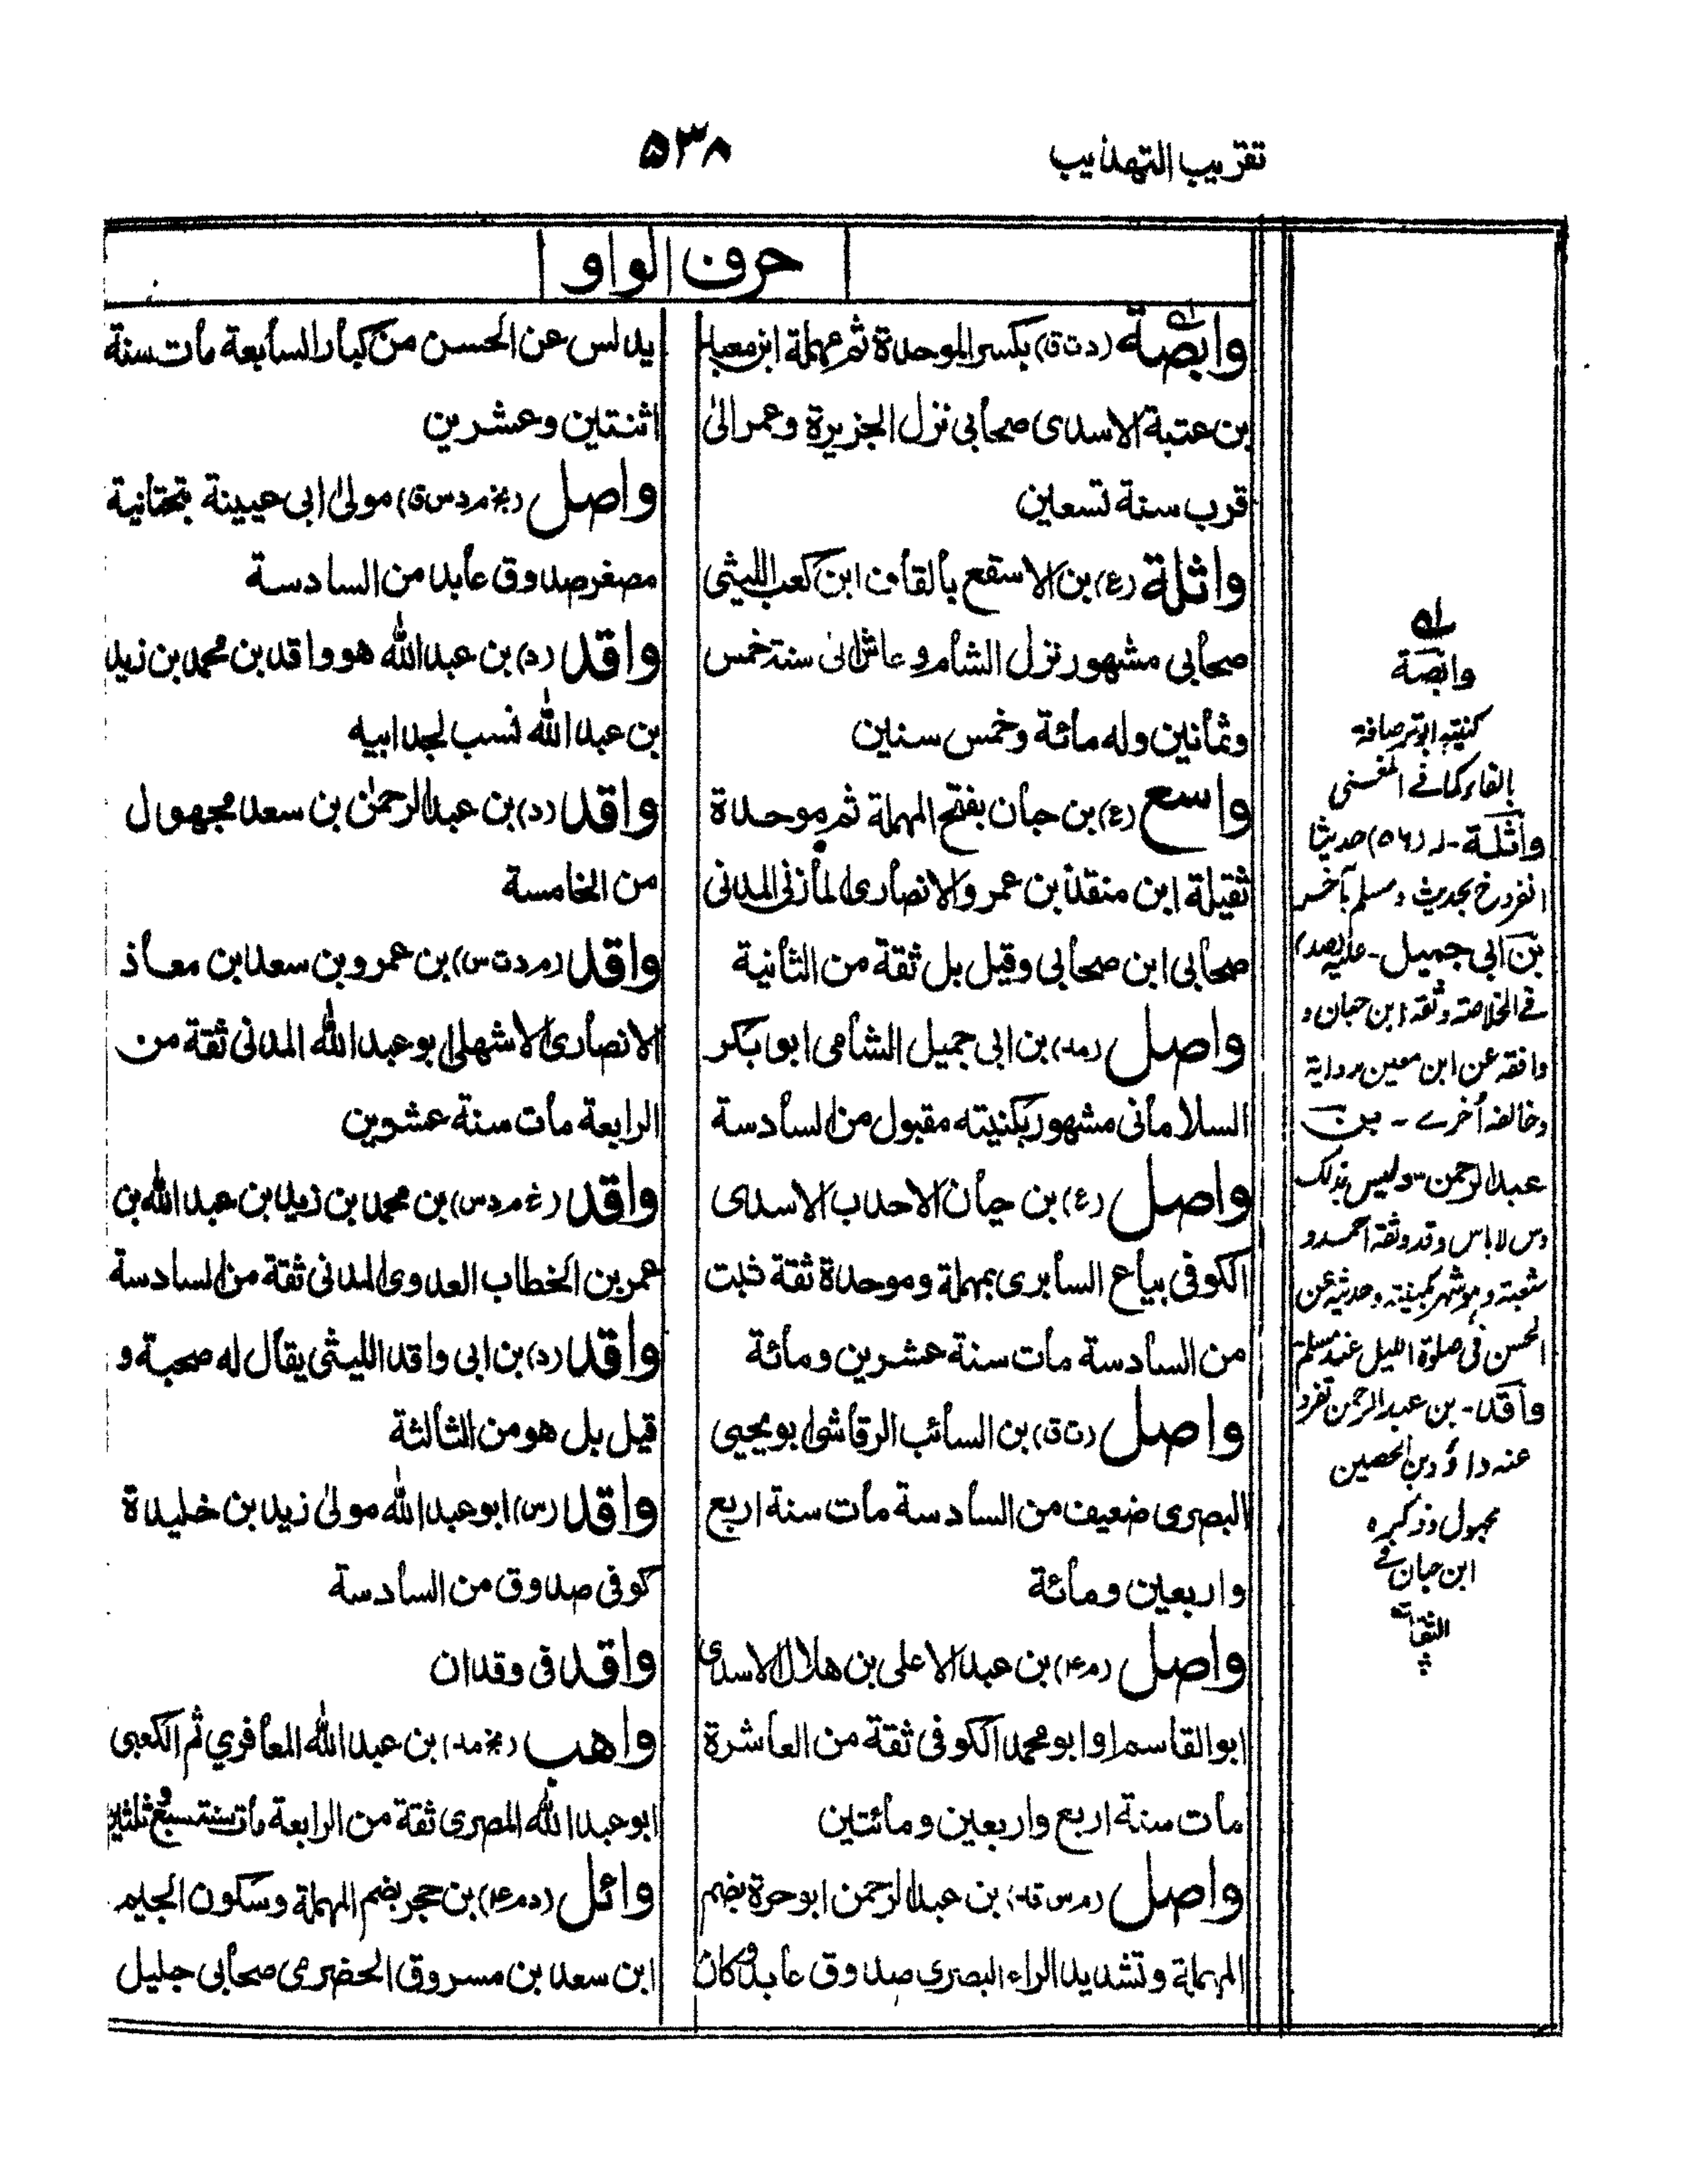 تقريب التهذيب
۵۳۸
حرف الواو
وابصة (د ت ق) بكسر الموحدة ثم مهملة ابن معبد
بن عتبة الاسدى صحابى نزل الجزيرة وعمر الىٰ
قرب سنة تسعين
واثلة (ع) بن الاسقع بالقاف ابن كعب الليثى
صحابى مشهور نزل الشام وعاش الى سنة خمس
وثمانين وله مائة وخمس سنين
واسع (ع) بن حبان بفتح المهملة ثم موحدة
ثقيلة ابن منقذ بن عمرو الانصارى المازنى المدنى
صحابى ابن صحابى وقيل بل ثقة من الثانية
واصل (مد) بن ابى جميل الشامى ابو بكر
السلامانى مشهور بكنيته مقبول من السادسة
واصل (ع) بن حيان الاحدب الاسدى
الكوفى بياع السابرى بمهملة وموحدة ثقة ثبت
من السادسة مات سنة عشرين ومائة
واصل (ت ق) بن السائب الرقاشى ابو يحيى
البصرى ضعيف من السادسة مات سنة اربع
واربعين ومائة
واصل (م ۴) بن عبد الاعلى بن هلال الاسدى
ابو القاسم او ابو محمد الكوفى ثقة من العاشرة
مات سنة اربع واربعين ومائتين
واصل (م س قد) بن عبد الرحمن ابو حرة بضم
المهملة وتشديد الراء البصرى صدوق عابد وكان
يدلس عن الحسن من كبار السابعة مات سنة
اثنتين وعشرين
واصل (بخ م د س ق) مولىٰ ابى عيينة بتحتانية
مصغر صدوق عابد من السادسة
واقد (د) بن عبد الله هو واقد بن محمد بن زيد
بن عبد الله نسب لجد ابيه
واقد (د) بن عبد الرحمٰن بن سعد مجهول
من الخامسة
واقد (م د ت س) بن عمرو بن سعد ابن معاذ
الانصارى الاشهلى ابو عبد الله المدنى ثقة من
الرابعة مات سنة عشرين
واقد (خ م د س) بن محمد بن زيد بن عبد الله بن
عمر بن الخطاب العدوى المدنى ثقة من السادسة
واقد (د) بن ابى واقد الليثى يقال له صحبة و
قيل بل هو من الثالثة
واقد (س) ابو عبد الله مولىٰ زيد بن خليدة
كوفى صدوق من السادسة
واقد فى وقدان
واهب (بخ مد) بن عبد الله المعافري ثم الكعبى
ابو عبد الله المصرى ثقة من الرابعة مات سنة سبع وثلثين
وائل (د م ۴) بن حجر بضم المهملة وسكون الجيم
ابن سعد بن مسروق الحضرمى صحابى جليل
لہ
وابصة
كنيته ابو قرصافة
بالفاء كما فے المغنى
واثلة - لہ (۵۶) حديثا
انفرد خ بحديث ومسلم بآخر
بن ابى جميل -
فے الخلاصة وثقه ابن حبان و
وافقه عن ابن معين رواية
وخالفه أخرے - بن
عبد الرحمن وليس بذلك
وس لا باس وقد وثقه احمد و
شعبة وهو اشهر بكنيته وحديثه عن
الحسن فى صلوة الليل عند مسلم
واقد - بن عبد الرحمن تفرد
عنه داؤد بن الحصين
مجهول وذكره
ابن حبان فے
الثقات